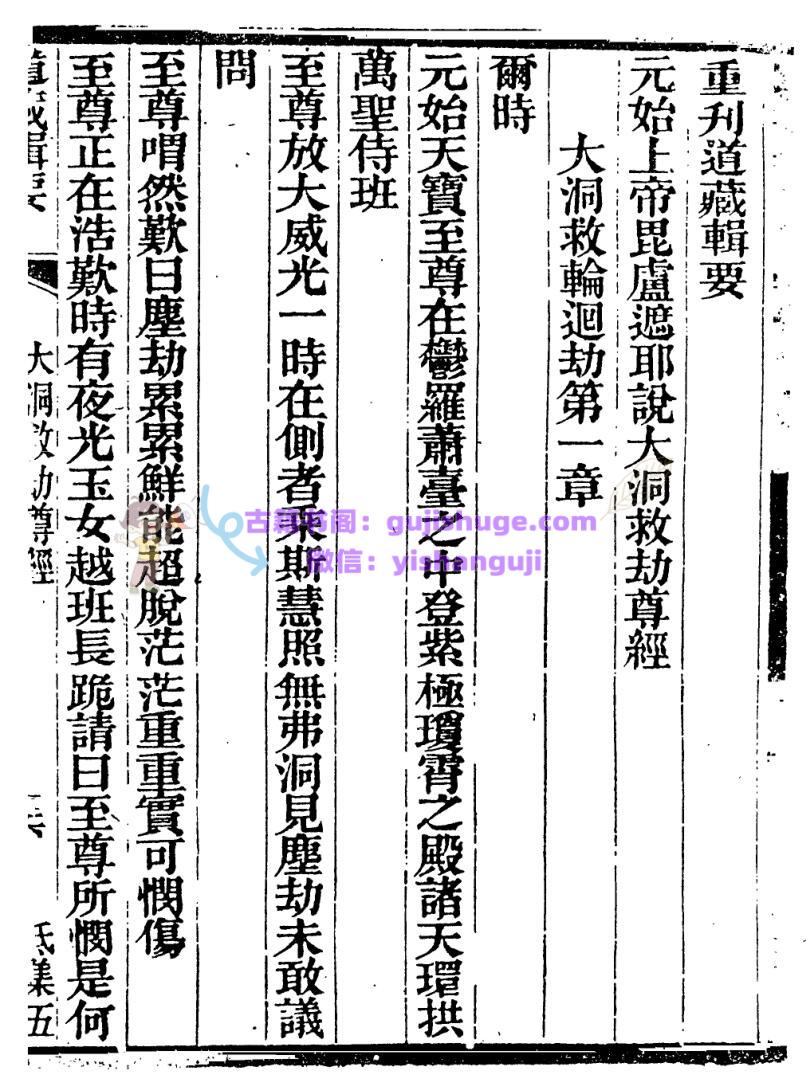 重刊道藏輯要
元始上帝毘盧遮耶說大洞救劫尊經
大洞救輪迴劫第一章
爾時
元始天寶至尊在鬱羅蕭臺之中登紫極瓊霄之殿諸天環拱
萬聖侍班
至尊放大威光一時在側者乘斯慧照無弗洞見塵劫未敢議
問
至尊喟然歎曰塵劫累累鮮能超脫茫茫重重實可憫傷
至尊正在浩歎時有夜光玉女越班長跪請曰至尊所憫是何
大洞救劫尊經
氐集五
古籍书阁：gujishuge.com
微信：yishanguji